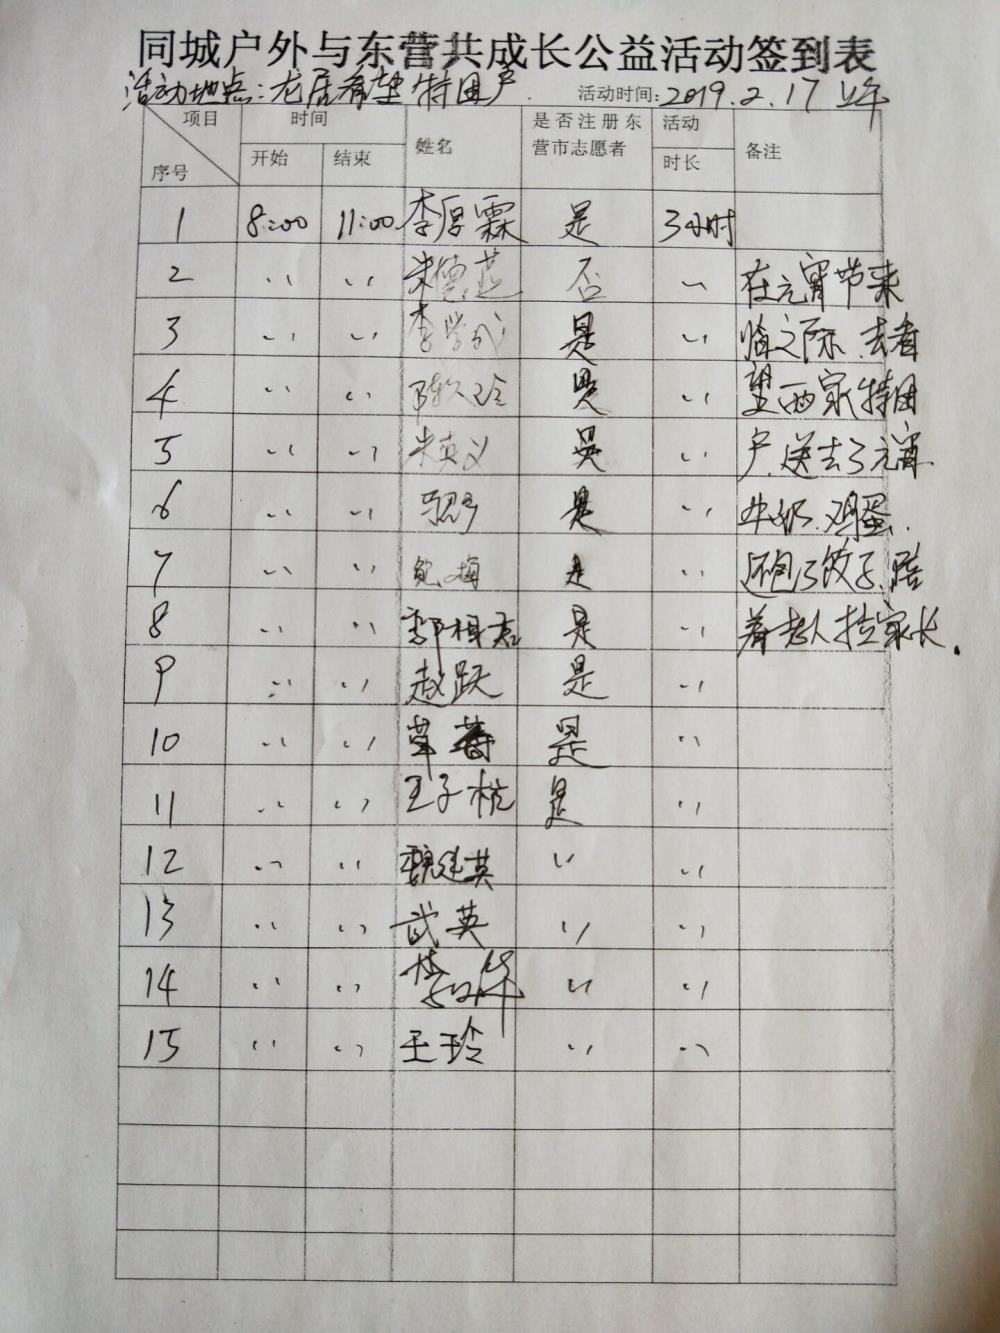 同城户外与东营共成长公益活动签到表
活动地点:龙居看望特困户 活动时间:2019.2.17上午
项目 序号 时间 开始 结束 姓名 是否注册东营市志愿者 活动时长 备注
1 8:00 11:00 李厚霖 是 3小时
2 〃 〃 否 〃 在元宵节来
3 〃 〃 李学成 是 〃 临之际.去看
4 〃 〃 是 〃 望两家特困
5 〃 〃 米英义 是 〃 户.送去了元宵
6 〃 〃 是 〃 牛奶.鸡蛋.
7 〃 〃 是 〃 还包了饺子.陪
8 〃 〃 是 〃 着老人拉家长.
9 〃 〃 赵跃 是 〃
10 〃 〃 草莓 是 〃
11 〃 〃 王子杭 是 〃
12 〃 〃 魏建英 〃 〃
13 〃 〃 武英 〃 〃
14 〃 〃 〃 〃
15 〃 〃 王玲 〃 〃